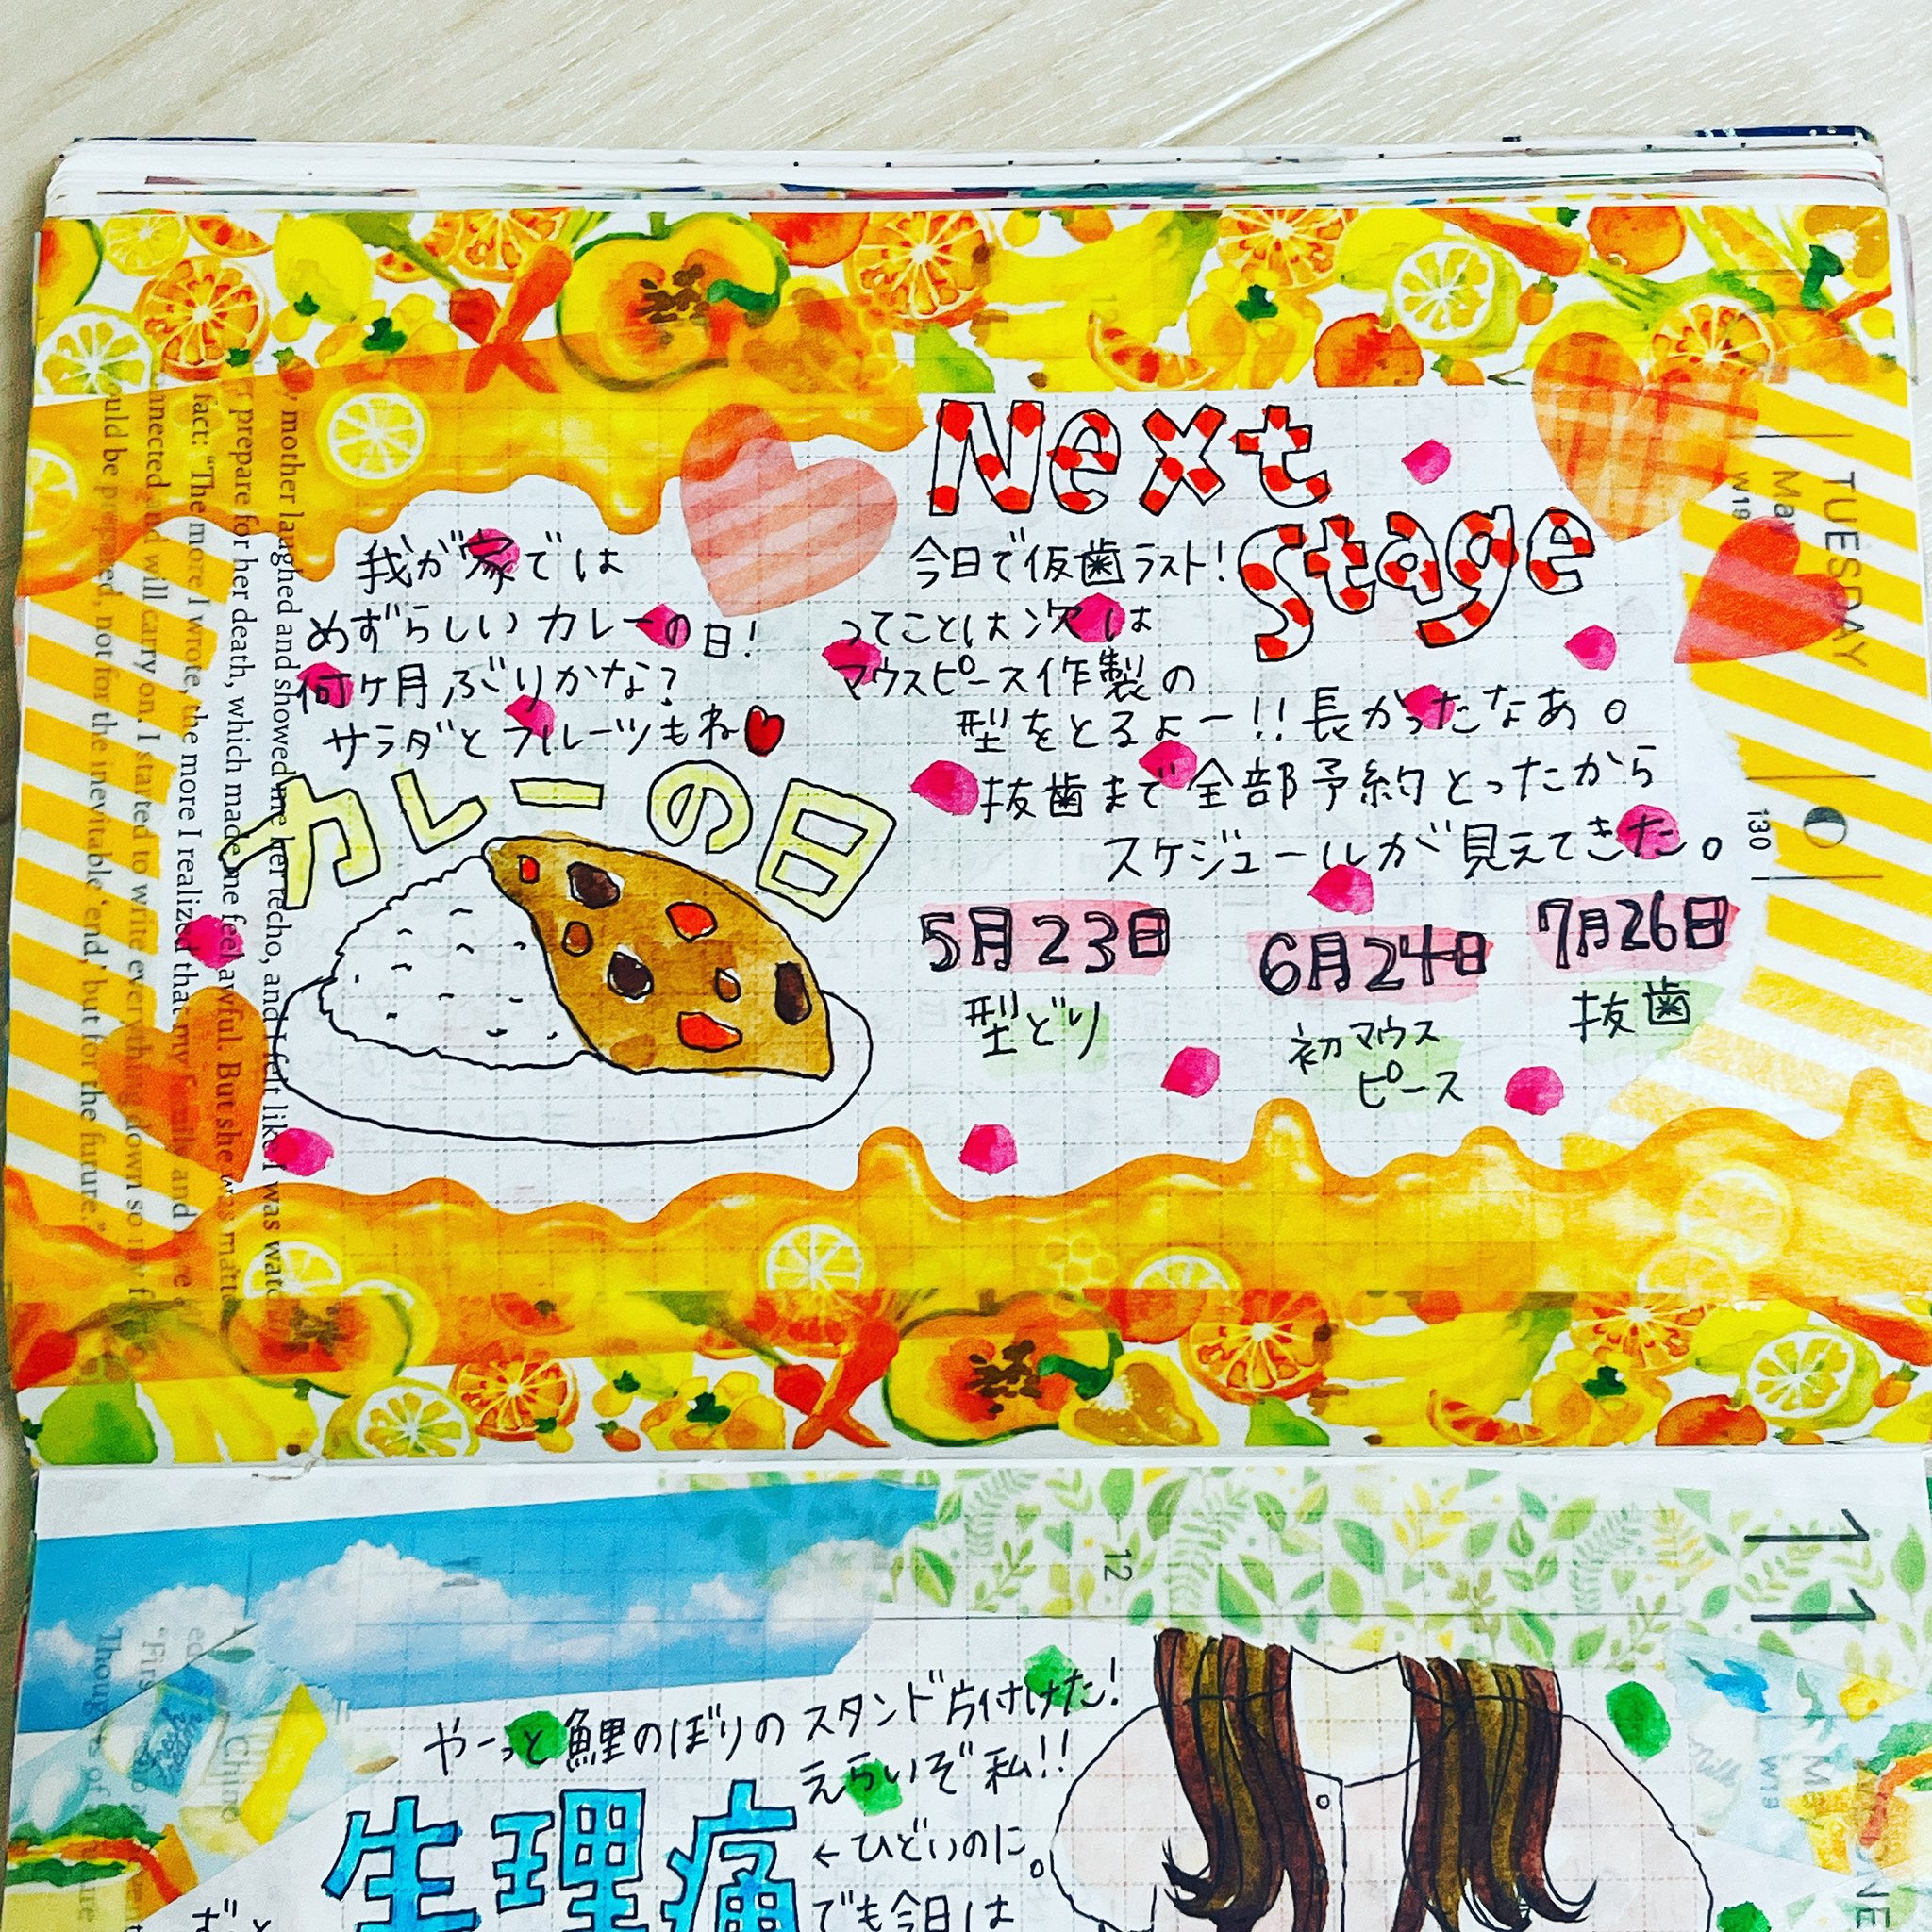 Next
Stage
我が家では
めずらしいカレーの日!
何ヶ月ぶりかな?
サラダとフルーツもね
カレーの日
今日で仮歯ラスト!
ってことは次は
マウスピース作製の
型をとるよー!!長かったなあ。
抜歯まで全部予約とったから
スケジュールが見えてきた。
5月23日
型どり
6月24日
初マウス
ピース
7月26日
抜歯
TUESDAY
W19
130
mother laughed and showed me her techo, and I felt like I was
prepare for her death, which made me feel awful. But she was
fact: "The more I wrote, the more I realized that my family and
and will carry on. I started to write everything down so my
ould be prepared, not for the inevitable 'end,' but for the future."
11
12
W19
やーっと鯉のぼりのスタンド片付けた!
えらいぞ私!!
生理痛
←ひどいのに。
でも今日は